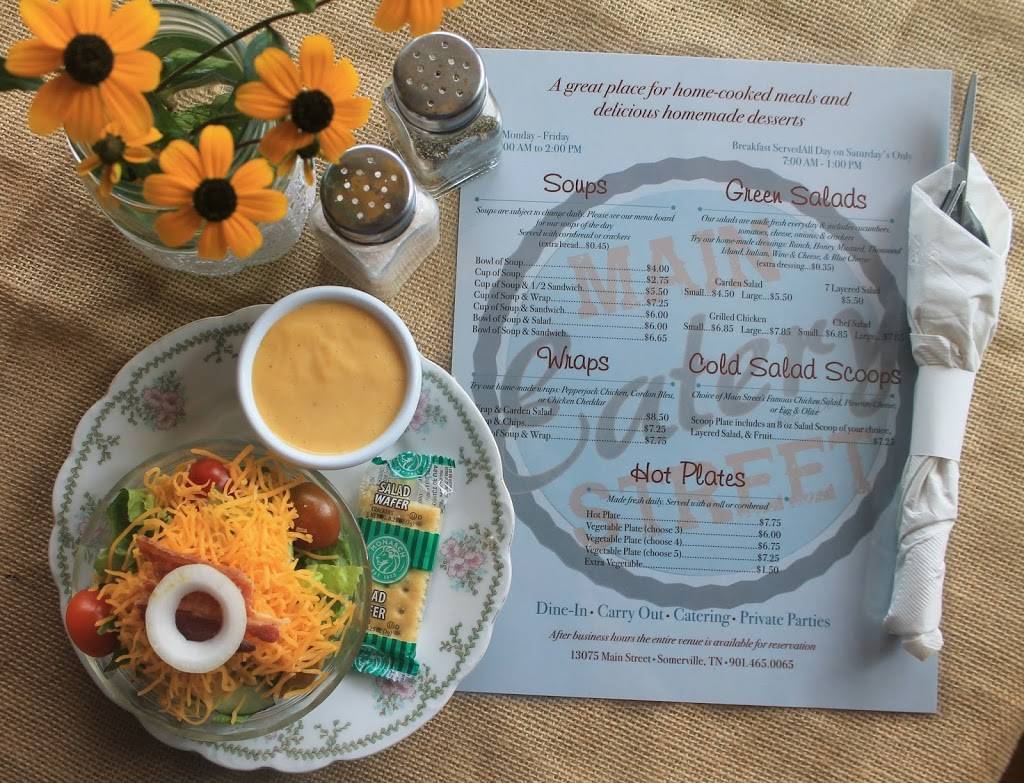 A great place for home-cooked meals and
delicious homemade desserts
Monday - Friday
00 AM to 2:00 PM
Breakfast ServedAll Day on Saturday's Only
7:00 AM - 1:00 PM
Soups
Soups are subject to change daily. Please see our menu board
for our soups of the day
Served with cornbread or crackers
(extra bread...$0.45)
Bowl of Soup $4.00
Cup of Soup $2.75
Cup of Soup & 1/2 Sandwich $5.50
Cup of Soup & Wrap $7.25
Cup of Soup & Sandwich $6.00
Bowl of Soup & Salad $6.00
Bowl of Soup & Sandwich $6.65
Green Salads
Our salads are made fresh everyday & includes cucumbers,
tomatoes, cheese, onions, & crackers
Try our home-made dressings: Ranch, Honey Mustard, Thousand
Island, Italian, Wine & Cheese, & Blue Cheese
(extra dressing...$0.35)
Garden Salad
Small...$4.50 Large...$5.50
7 Layered Salad
$5.50
Grilled Chicken
Small...$6.85 Large...$7.85
Chef Salad
Small...$6.85 Large...$7.85
MAIN
Eatery
STREET
Wraps
Try our home-made wraps: Pepperjack Chicken, Cordon Bleu,
or Chicken Cheddar
rap & Garden Salad $8.50
p & Chips $7.25
of Soup & Wrap $7.75
Cold Salad Scoops
Choice of Main Street's Famous Chicken Salad, Pimento Cheese,
or Egg & Olive
Scoop Plate includes an 8 oz Salad Scoop of your choice,
Layered Salad, & Fruit $7.25
Hot Plates
Made fresh daily. Served with a roll or cornbread
Hot Plate $7.75
Vegetable Plate (choose 3) $6.00
Vegetable Plate (choose 4) $6.75
Vegetable Plate (choose 5) $7.25
Extra Vegetable $1.50
Dine-In • Carry Out • Catering • Private Parties
After business hours the entire venue is available for reservation
13075 Main Street • Somerville, TN • 901.465.0065
SALAD
WAFER
CRACKERS
MONARCH
AD
FER